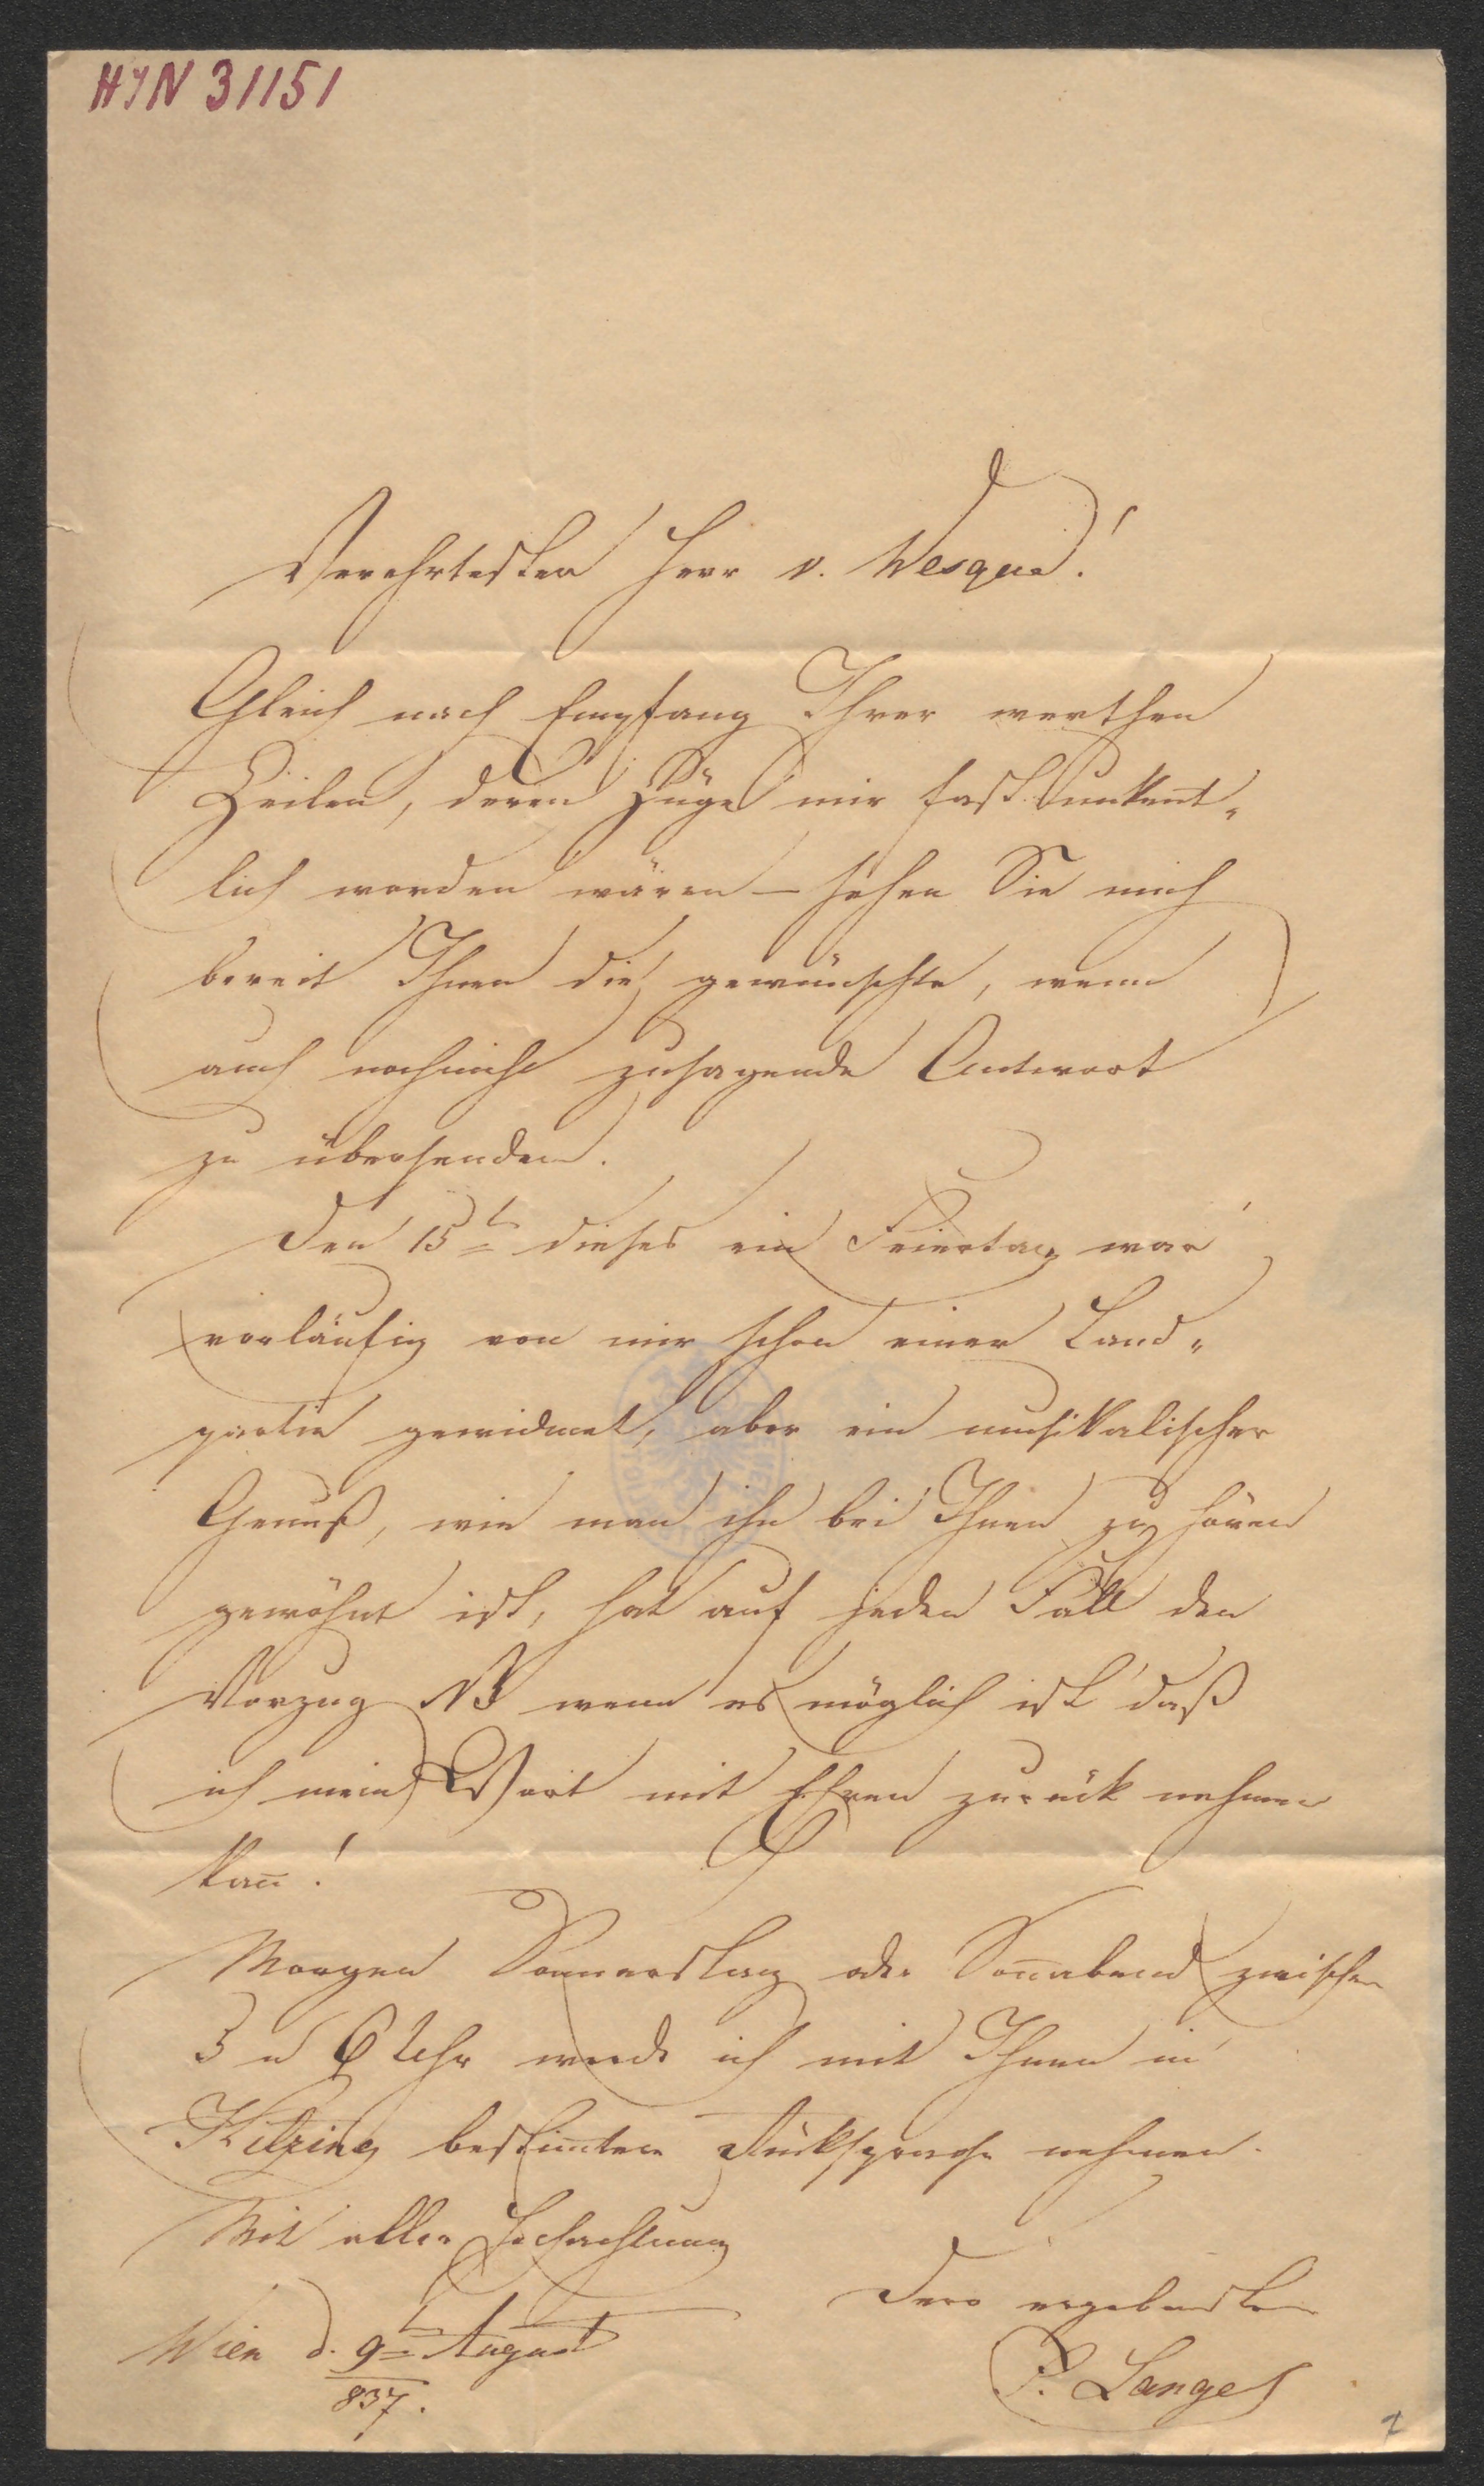 HIN 31151
Verehrtester Herr v. Vesque!
Gleich nach Empfang Ihrer werthen
Zeilen, deren Züge mir fast unkent„
lich worden wären – sehen Sie mich
bereit Ihnen die gewünschte, wenn
auch noch nicht zusagende Antwort
zu übersenden.
Den 15t dieses ein Feiertag war
vorläufig von mir schon einer Land„
partie gewidmet, aber ein musikalischer
Genuß, wie man ihn bei Ihnen zu hören
gewöhnt ist, hat auf jeden Fall den
Vorzug NB wenn es möglich ist daß
ich mein Wort mit Ehren zurück nehmen
kan̄!
Morgen Donnerstag oder Son̄abend zwischen
5 u 6 Uhr werde ich mit Ihnen in
Hitzing bestim̄tere Rücksprache nehmen.
Mit aller Hochachtung
Dero ergebenster
Wien d. 9t August
837.
P. Lange